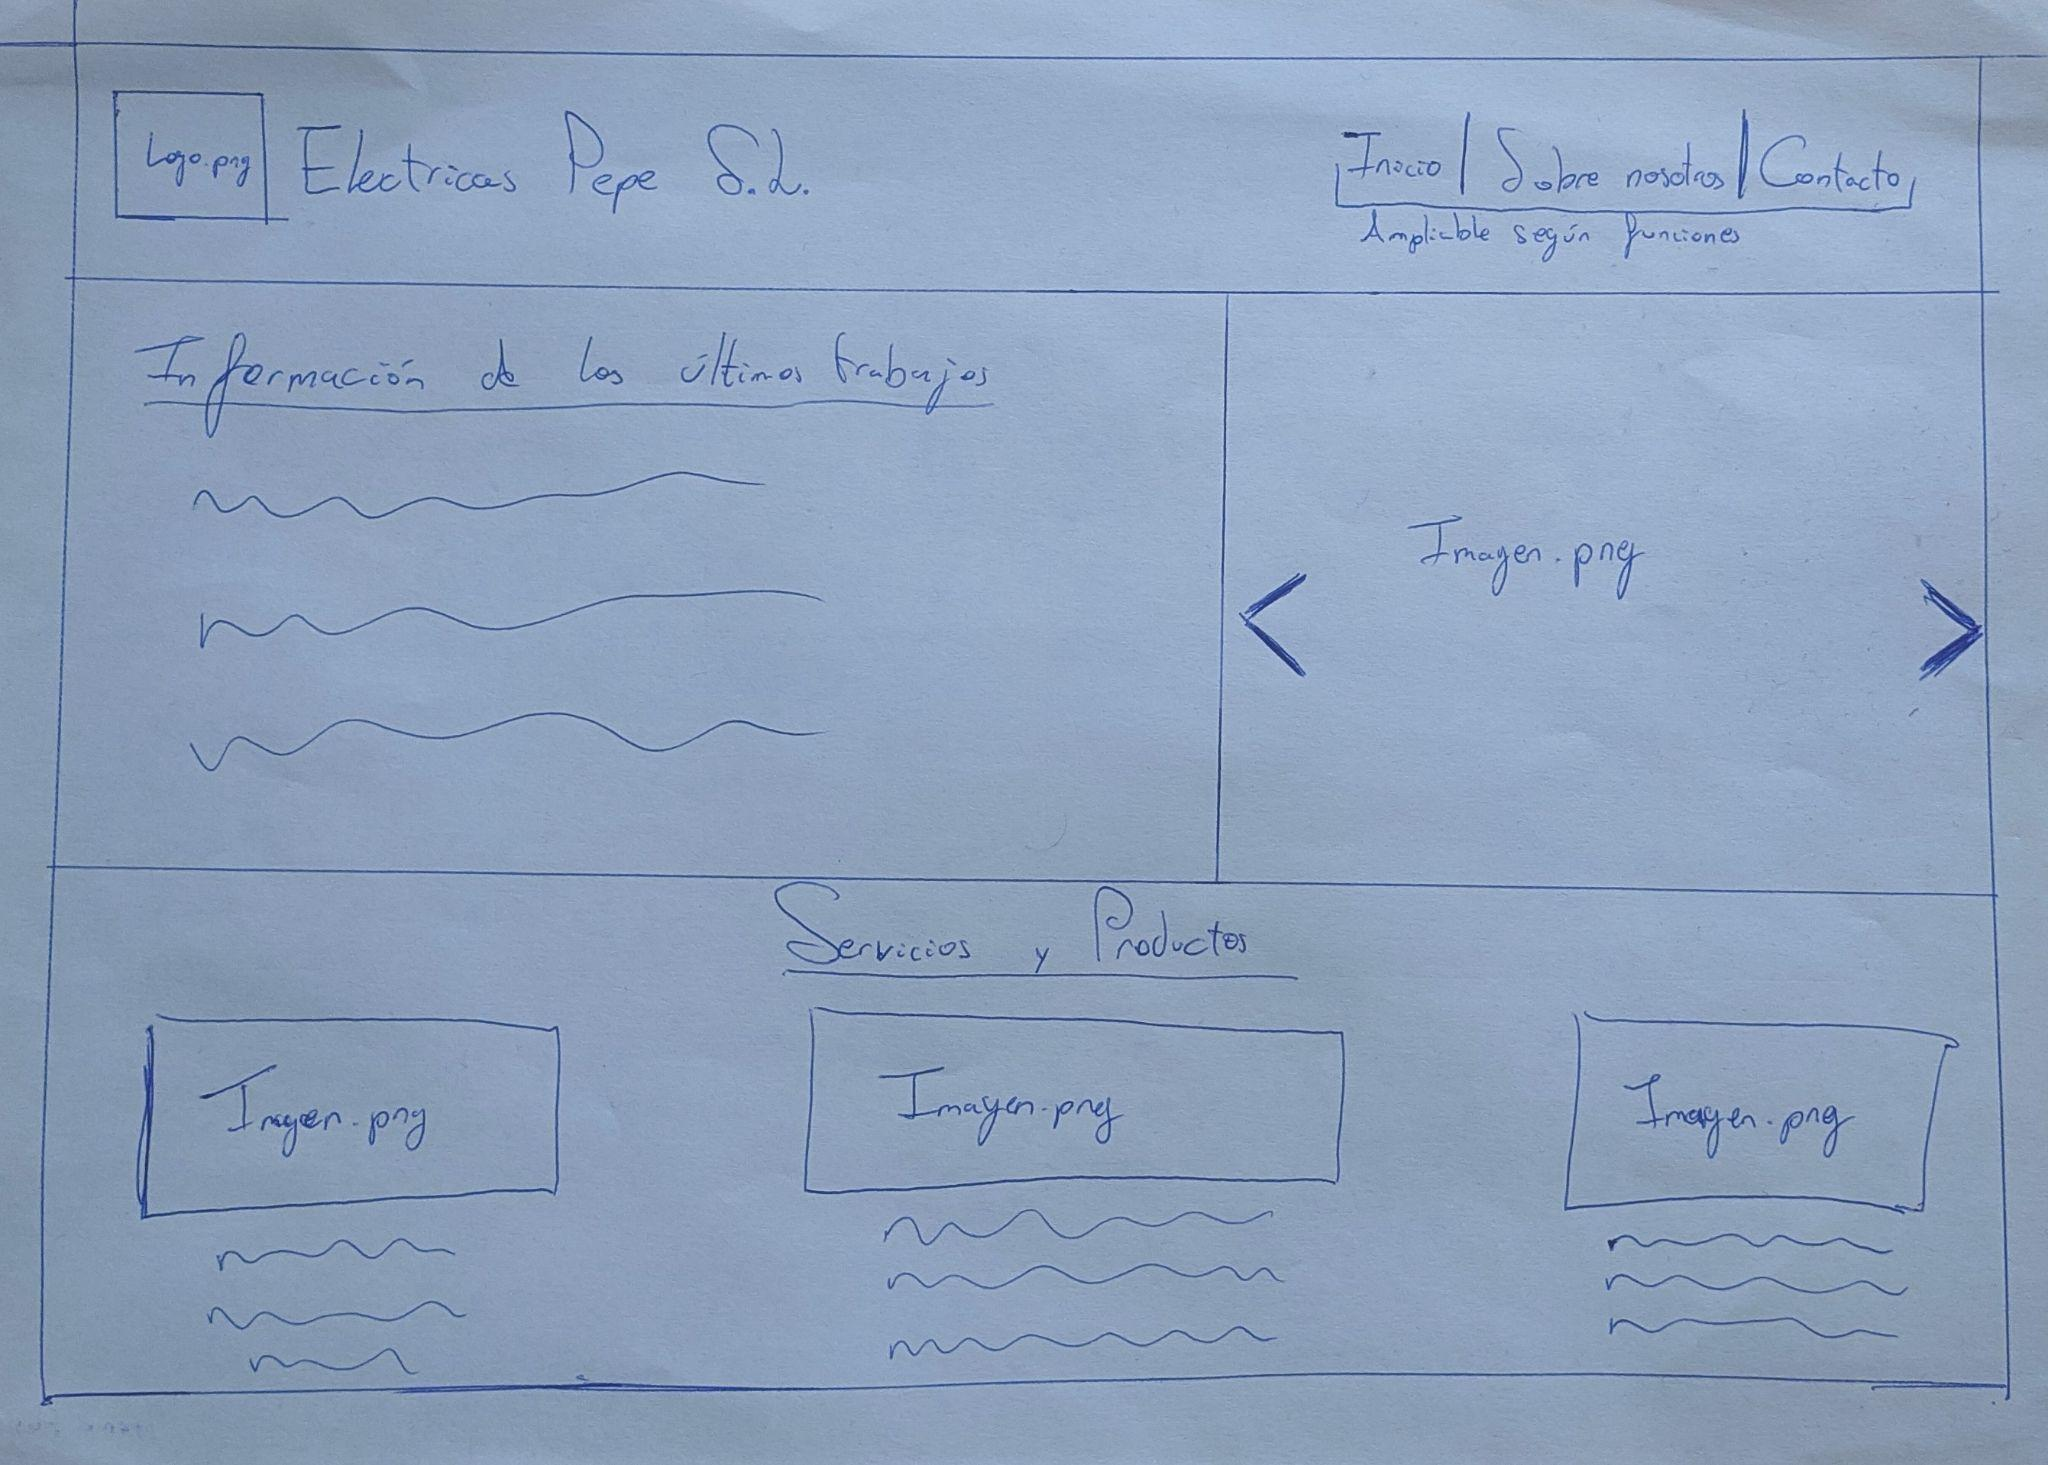 Logo.png
Electricas Pepe S.L.
Inicio | Sobre nosotros | Contacto
Ampliable según funciones
Información de los últimos trabajos
Imagen.png
< >
Servicios y Productos
Imagen.png
Imagen.png
Imagen.png